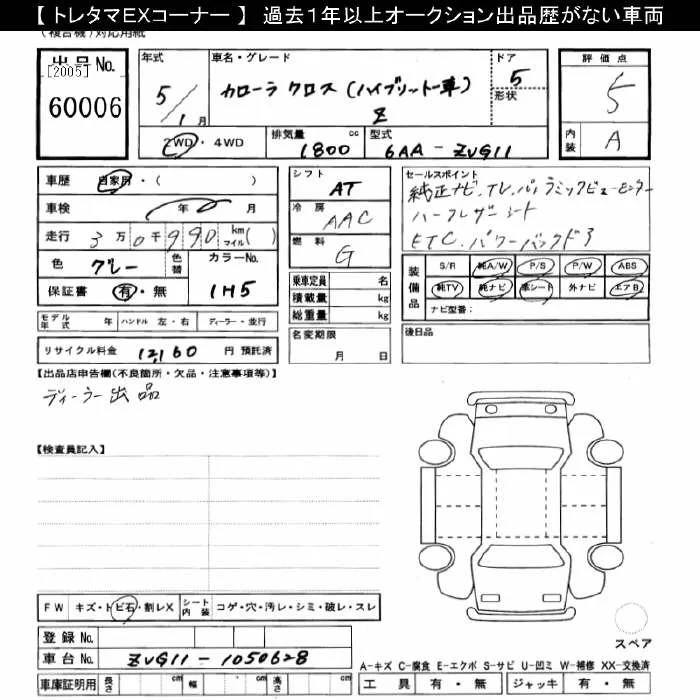 【 トレタマEXコーナー 】 過去1年以上オークション出品歴がない車両
(複合機)対応用紙
出品No.
[2005]
60006
年式
5/1月
車名・グレード
カローラ クロス(ハイブリット車)
Z
ドア
5
形状
評価点
5
内装
A
2WD・4WD
排気量 cc
1800
型式
6AA-ZVG11
車歴 自家用・( )
車検 年 0 月
走行 3万0千990 km マイル( )
色 グレー 色替
カラーNo.
1H5
保証書 有・無
シフト
AT
冷房
AAC
燃料
G
セールスポイント
純正ナビ、TV、パノラミックビューモニター
ハーフレザーシート
ETC、パワーバックドア
装備品
S/R 純A/W P/S P/W ABS
純TV 純ナビ 革シート 外ナビ エアB
ナビ型番:
乗車定員 名
積載量 kg
総重量 kg
モデル年式 年 ハンドル 左・右 ディーラー・並行
名変期限
月 日
後日品
リサイクル料金 12,160 円 預託済
【出品店申告欄(不良箇所・欠品・注意事項等)】
ディーラー出品
【検査員記入】
FW キズ・トビ石・割レX シート内装 コゲ・穴・汚レ・シミ・破レ・スレ
登録No.
車台No. ZVG11-1050628
車庫証明用 長さ cm 幅 cm 高さ cm
スペア
A-キズ C-腐食 E-エクボ S-サビ U-凹ミ W-補修 XX-交換済
工具 有・無 ジャッキ 有・無